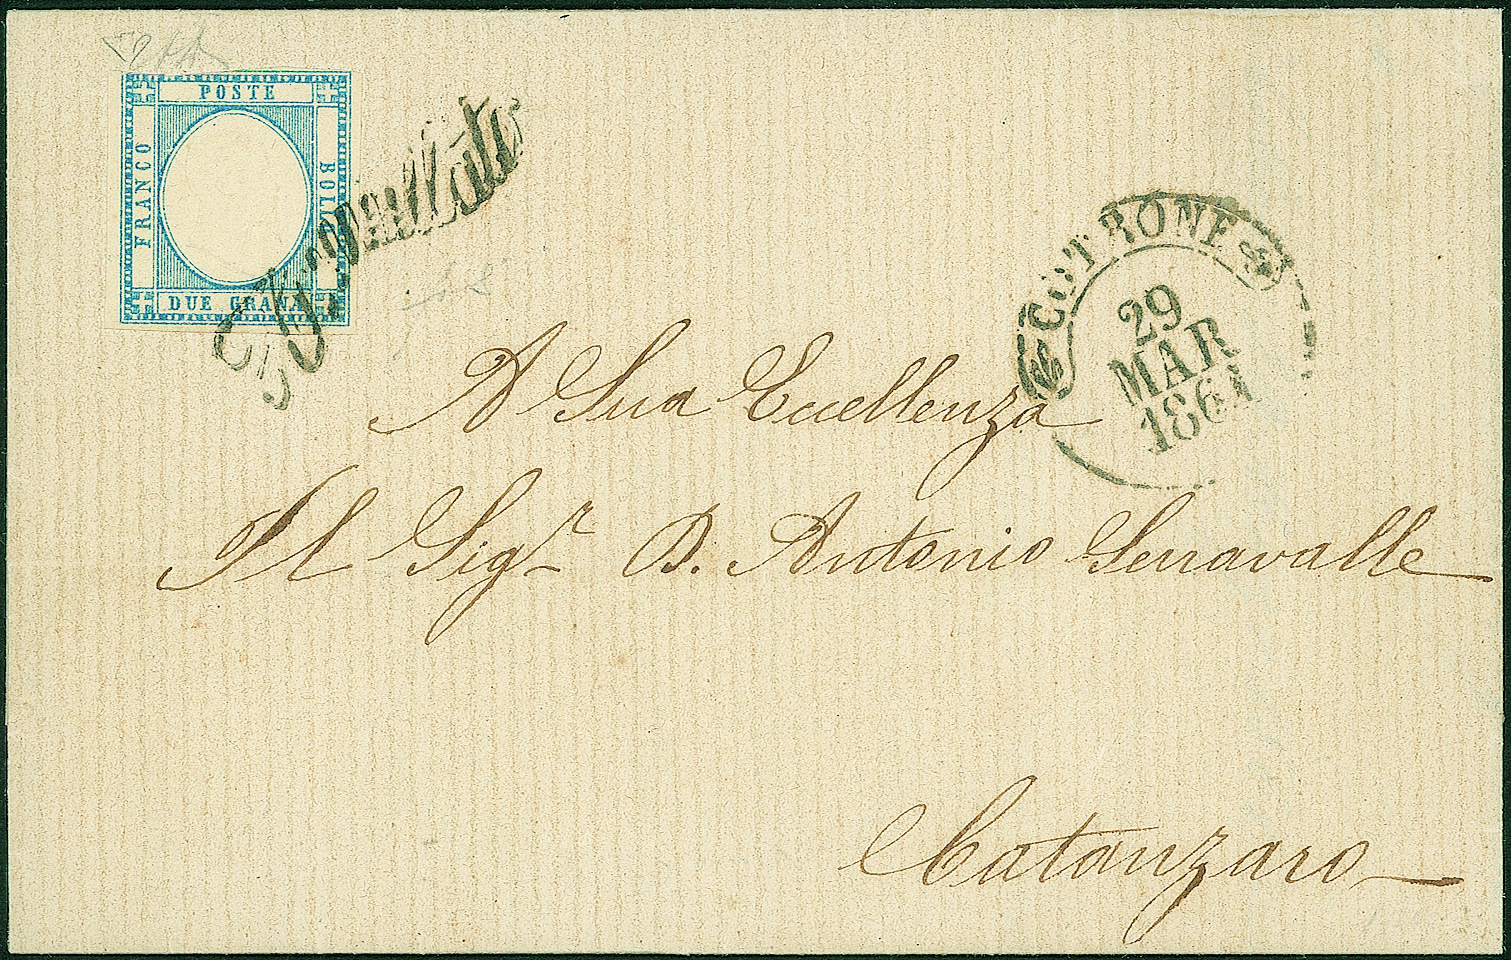 POSTE
FRANCO
BOLLO
DUE GRANA
Annullato
COTRONE
29
MAR
1861
A Sua Eccellenza
Il Sigr D. Antonio Serravalle
Catanzaro